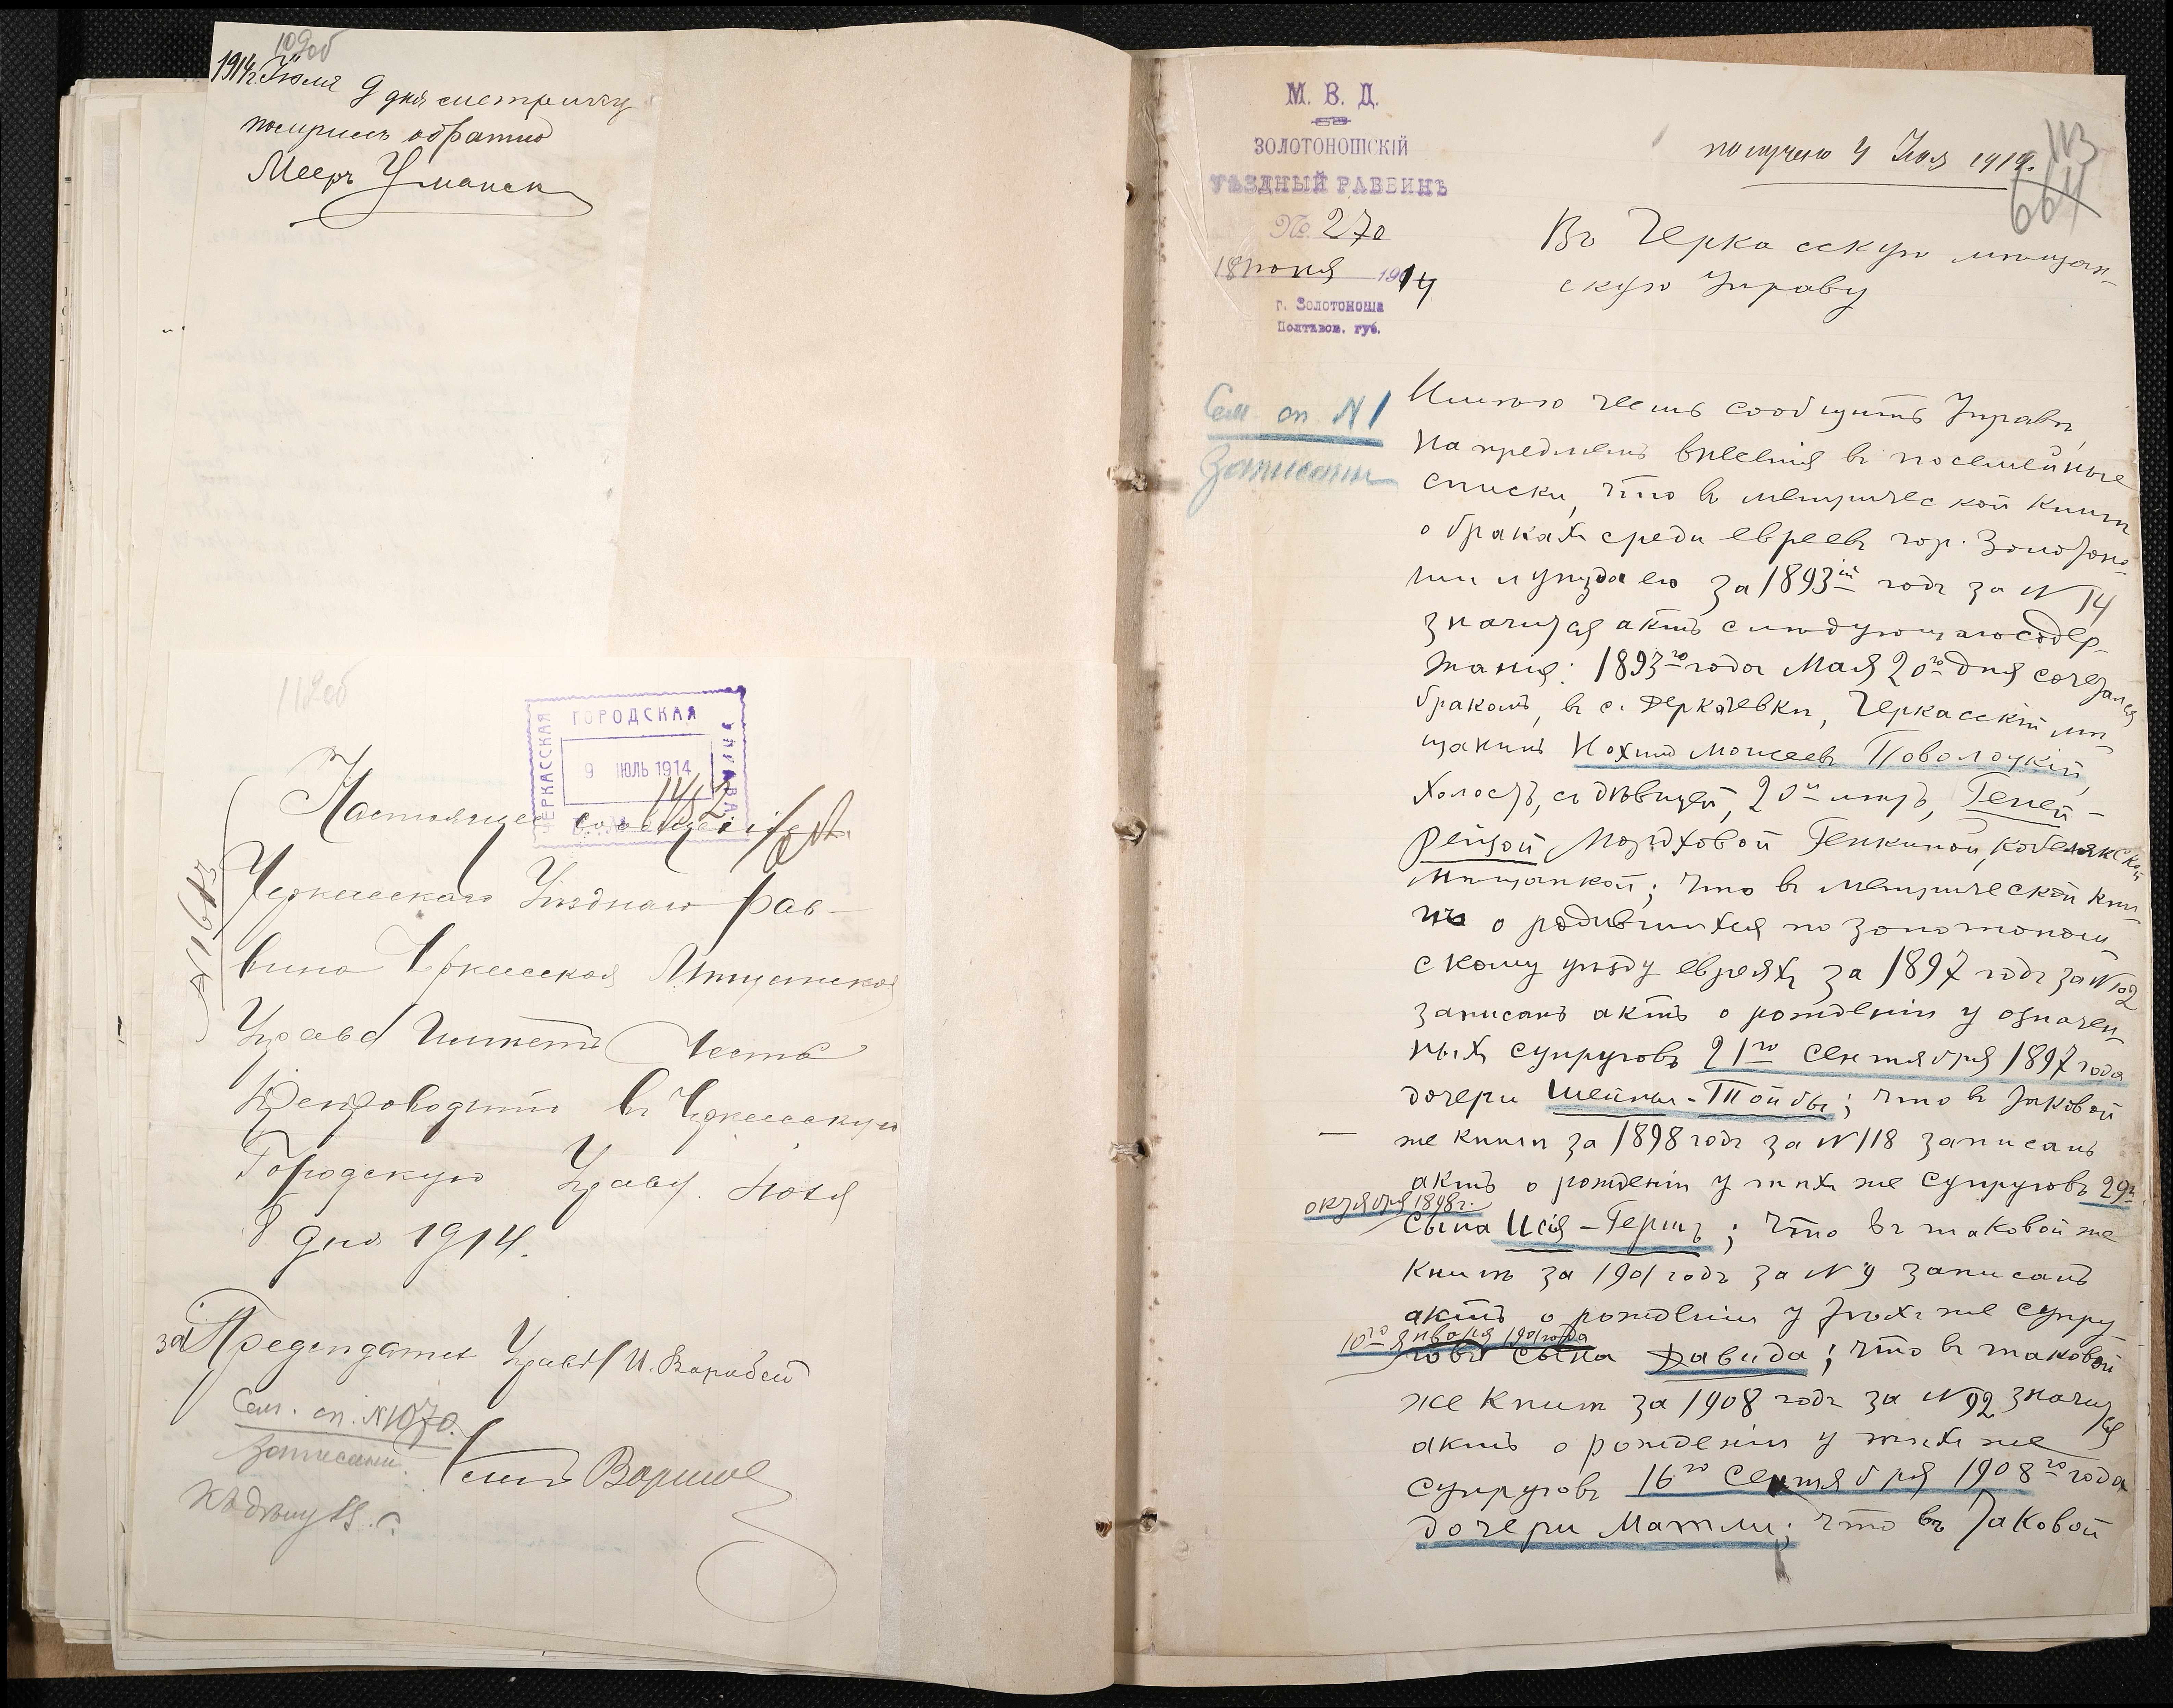 109об
1914г. Июля 9 дня метрику
получилъ обратно
Мееръ Уманск
112об
ЧЕРКАССКАЯ ГОРОДСКАЯ УПРАВА
9 ІЮЛЬ 1914
Настоящее сообщеніе
Черкасскаго Уѣзднаго Рав-
вина Черкасская Мѣщанская
Управа имѣетъ честь
препроводить въ Черкасскую
Городскую Управу. Іюля
8 дня 1914.
№ 1613
за Предсѣдателя Управы И. Воробей
Сем. сп. № 1070.
Записани
Къ дѣлу
М. В. Д.
ЗОЛОТОНОШСКІЙ
УѢЗДНЫЙ РАВВИНЪ
№ 270
18 Іюня 1914
г. Золотоноша
Полтавск. губ.
получено 4 Іюля 1914.
113
664
Въ Черкасскую мѣщан-
скую Управу
Сем сп № 1
Записани
Имѣю честь сообщить Управѣ,
на предметъ внесенія въ посемейные
списки, что въ метрической книгѣ
о бракахъ среди евреевъ гор. Золотоно-
ши и уѣзда его за 1893ій годъ за № 14
значится актъ слѣдующаго содер-
жанія: 1893го года Мая 20го дня сочетался
бракомъ, въ с. Деркачевкѣ, Черкасскій мѣ-
щанинъ Нохимъ Моисеевъ Поволоцкій,
холостъ, съ дѣвицей, 20и лѣтъ, Геней-
Рейзой Мордховой Генкиной, кобелякской
мѣщанкой; что въ метрической кни-
гѣ о родившихся по Золотонош-
скому уѣзду евреяхъ за 1897 годъ за № 102
записанъ актъ о рожденіи у означен-
ныхъ супруговъ 21го Сентября 1897 года
дочери Шейны-Тойбы; что въ таковой
же книгѣ за 1898 годъ за № 118 записанъ
актъ о рожденіи у тѣхъ же супруговъ 29го
октября 1898г.
сына Исія-Гершъ; что въ таковой же
книгѣ за 1901 годъ за № 9 записанъ
актъ о рожденіи у тѣхъ же супру-
10го января 1901 года
говъ сына Давида; что въ таковой
же книгѣ за 1908 годъ за № 92 значится
актъ о рожденіи у тѣхъ же
супруговъ 16го Сентября 1908го года
дочери Матли; что въ таковой